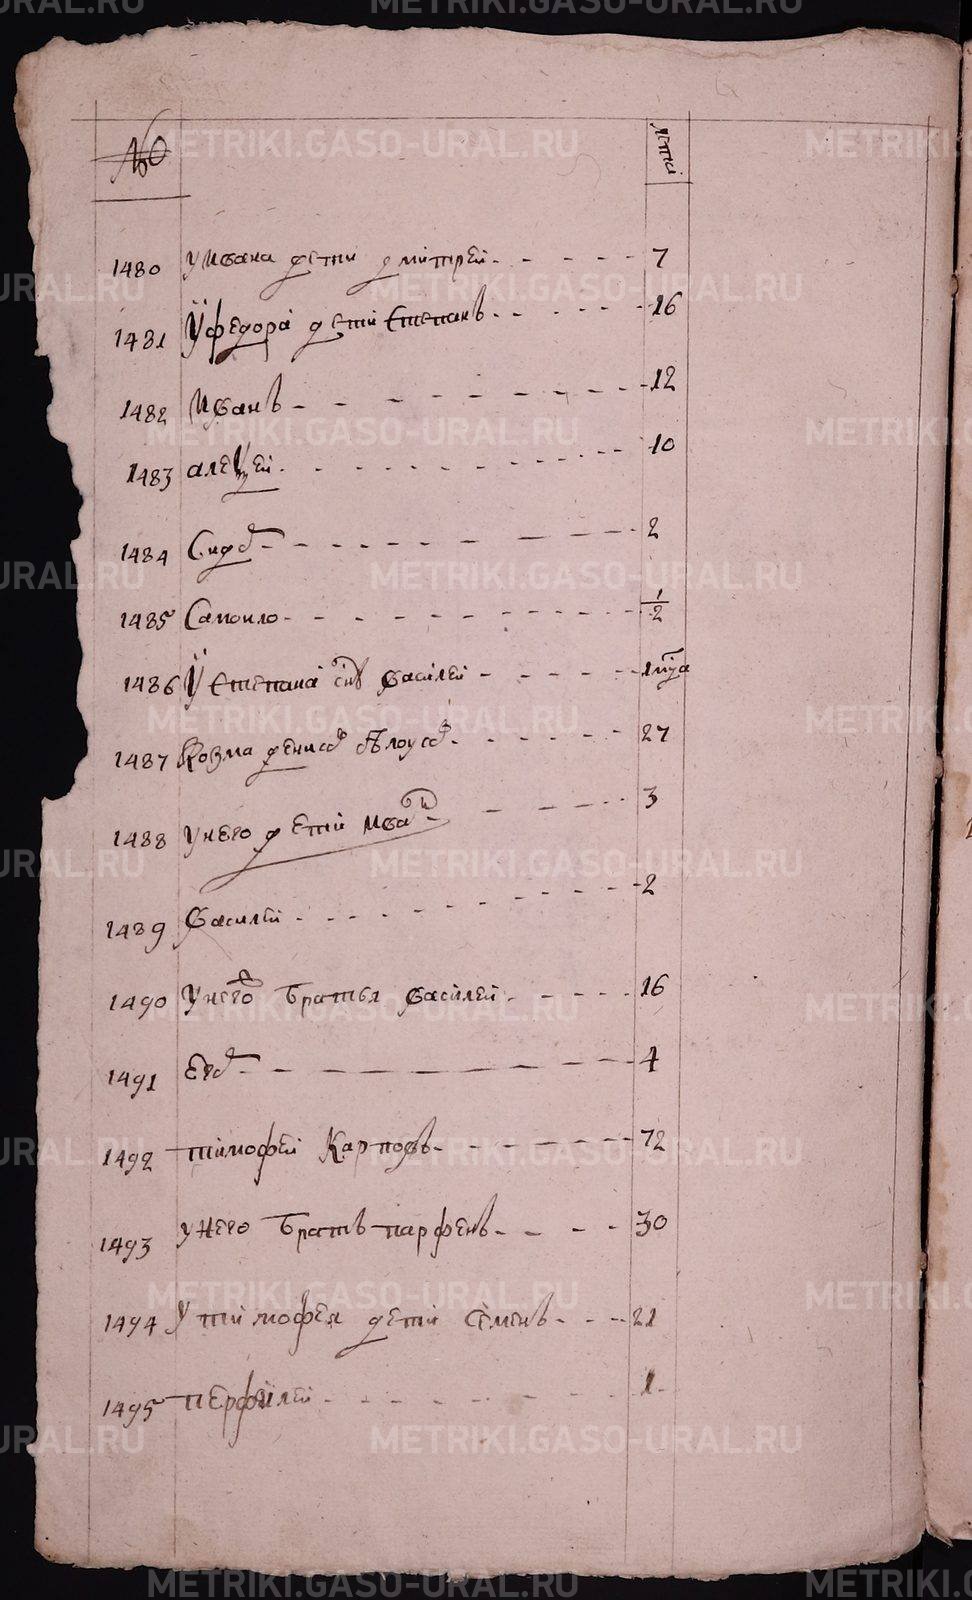 № лета
1480 У Ивана дети Дмитрей 7
1481 У Федора дети Степанъ 16
1482 Иванъ 12
1483 Алексей 10
1484 Сидоръ 2
1485 Самоило 1/2
1486 У Степана снъ Василей 1 мца
1487 Козма Денисов 27
1488 У него дети Иван 3
1489 Василей 2
1490 У него братья Василей 16
1491 Егор 4
1492 Тимофей Карповъ 72
1493 У него братъ Парфенъ 30
1494 У Тимофея дети Семенъ 21
1495 Перфилей 1
METRIKI.GASO-URAL.RU